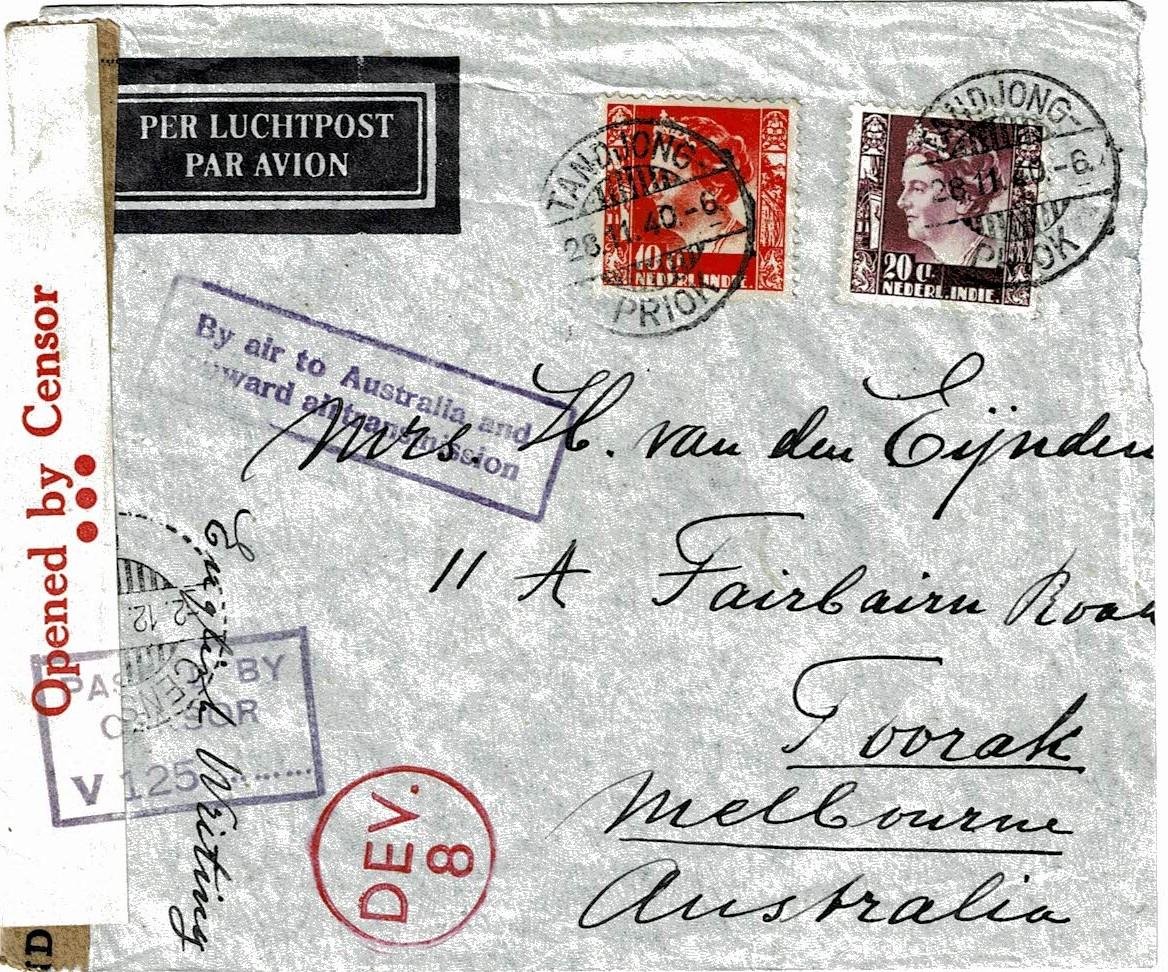 PER LUCHTPOST
PAR AVION
TANDJONG-
28.11.40.-6.
PRIOK
10 ct.
NEDERL.INDIE.
TANDJONG-
28.11.40.-6.
PRIOK
20 ct.
NEDERL.INDIE.
By air to Australia and
onward air transmission
Mrs. H. van den Eijnden
11 A Fairbairn Road
Toorak
Melbourne
Australia
Opened by Censor
English Writing
2.12.
CENS
PASSED BY
CENSOR
V 125
DEV.
8